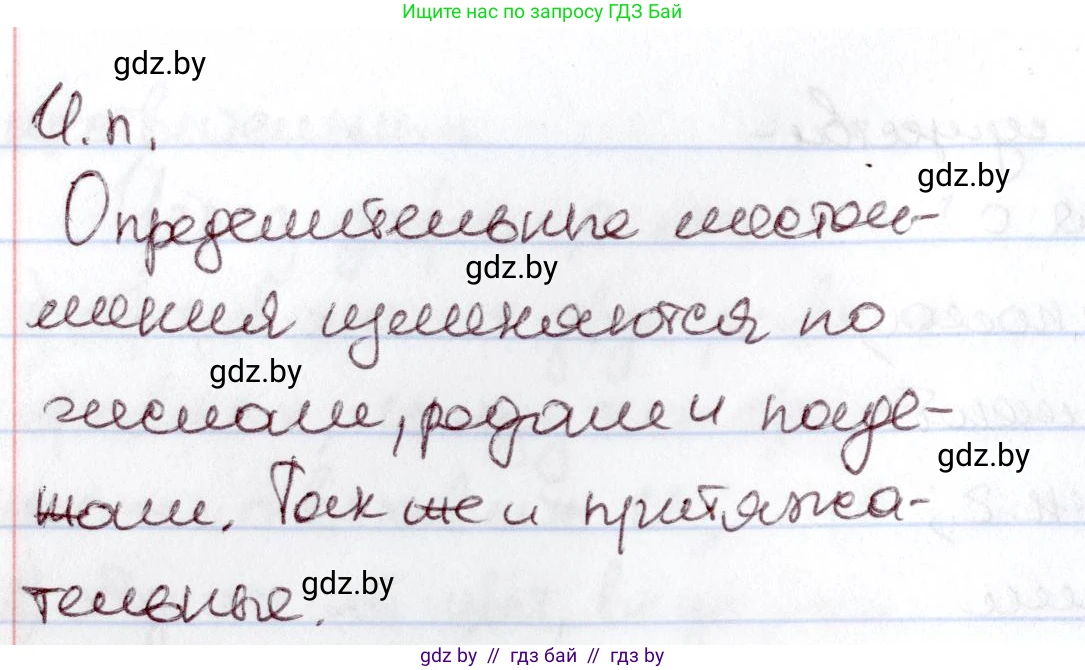 Ищите нас по запросу ГДЗ Бай
gdz.by
И.п.
gdz.by
Определительные местои-
gdz.by
мения изменяются по
gdz.by
числам, родам и паде-
gdz.by
жам. Так же и притяжа-
gdz.by
тельные.
gdz.by // гдз бай // gdz by